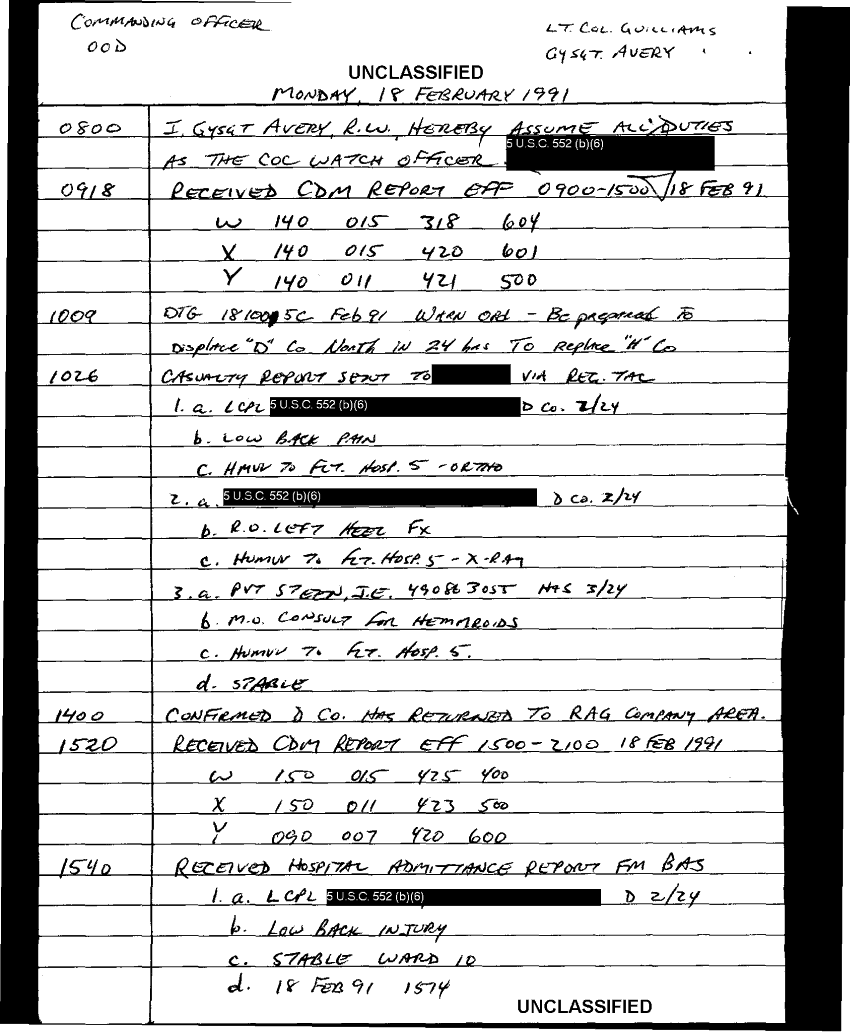 COMMANDING OFFICER LT. COL. GUILLIAMS
OOD GYSGT. AVERY
UNCLASSIFIED
MONDAY, 18 FEBRUARY 1991
0800 I, GYSGT AVERY, R.W., HEREBY ASSUME ALL DUTIES
AS THE COC WATCH OFFICER. 5 U.S.C. 552 (b)(6)
0918 RECEIVED CDM REPORT EFF 0900-1500 18 FEB 91
W 140 015 318 604
X 140 015 420 601
Y 140 011 421 500
1009 DTG 181005C Feb 91 WARN ORD - Be prepared To
Displace "D" Co North in 24 hrs To Replace "H" Co
1026 CASUALTY REPORT SENT TO VIA REG. TAC
1. a. LCPL 5 U.S.C. 552 (b)(6) D Co. 2/24
b. LOW BACK PAIN
c. HMUV TO FLT. HOSP. 5 - ORTHO
2. a. 5 U.S.C. 552 (b)(6) D Co. 2/24
b. R.O. LEFT HEEL FX
c. HUMUV To FLT. HOSP. 5 - X-RAY
3. a. PVT J.E. H&S 3/24
b. M.O. CONSULT FOR HEMMROIDS
c. HUMUV To FLT. HOSP. 5.
d. STABLE
1400 CONFIRMED D Co. HAS RETURNED TO RAG COMPANY AREA.
1520 RECEIVED CDM REPORT EFF 1500-2100 18 FEB 1991
W 150 015 425 400
X 150 011 423 500
Y 090 007 420 600
1540 RECEIVED HOSPITAL ADMITTANCE REPORT FM BAS
1. a. LCPL 5 U.S.C. 552 (b)(6) D 2/24
b. LOW BACK INJURY
c. STABLE WARD 10
d. 18 FEB 91 1574
UNCLASSIFIED